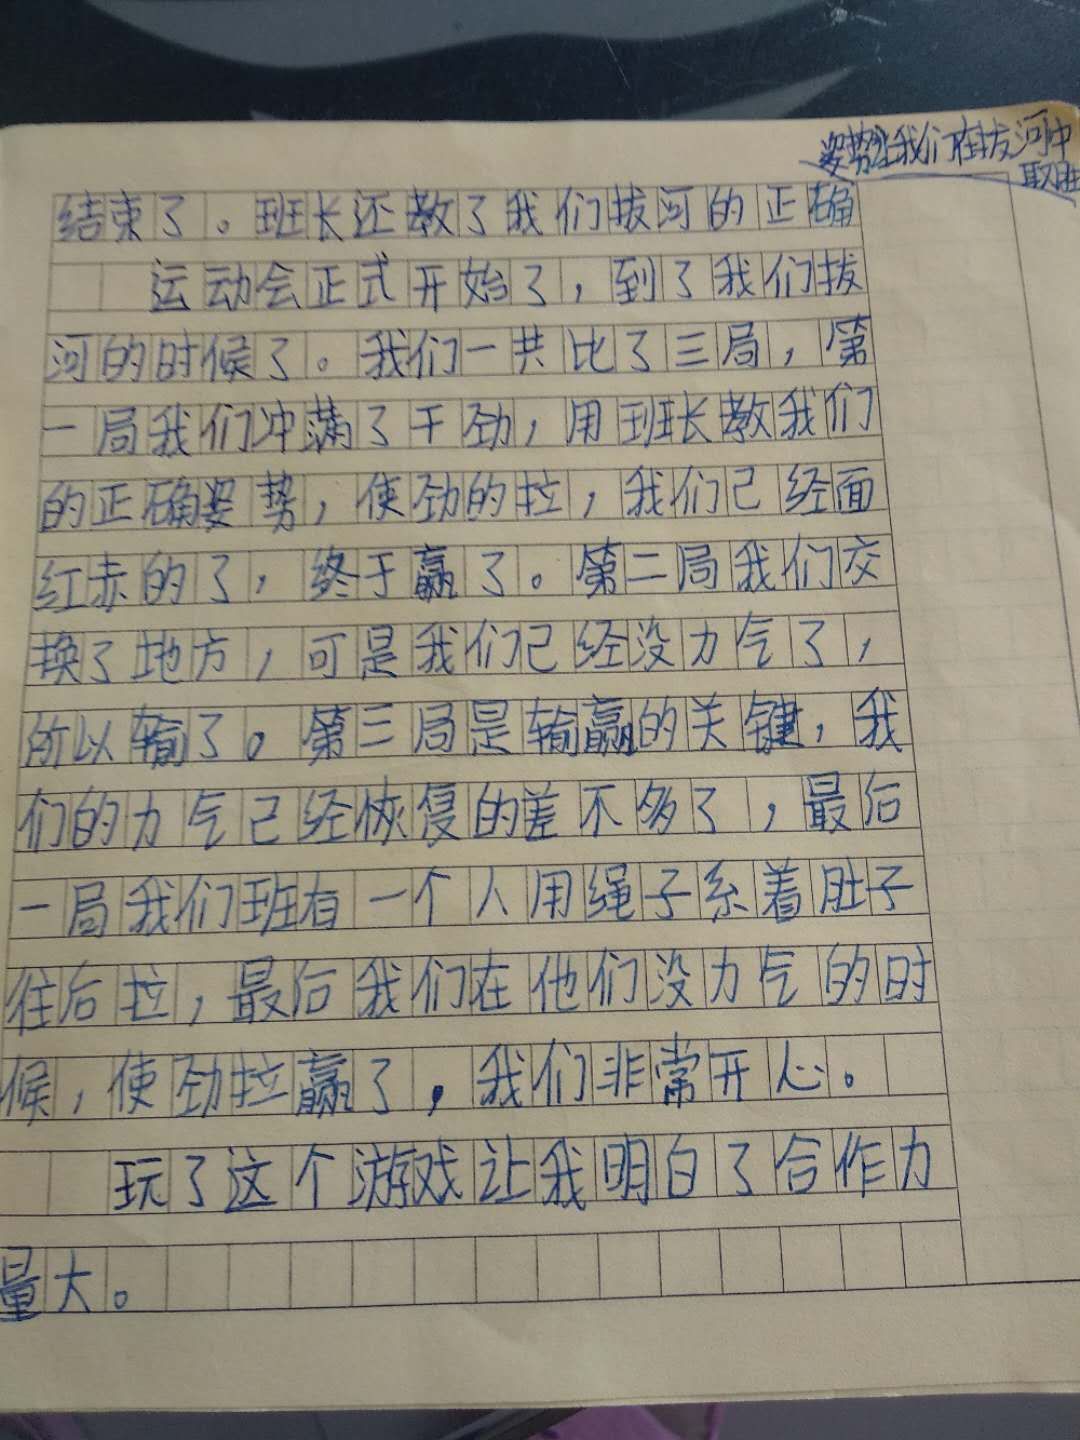 姿势让我们在拔河中
取胜
结束了。班长还教了我们拔河的正确
运动会正式开始了，到了我们拔
河的时候了。我们一共比了三局，第
一局我们冲满了干劲，用班长教我们
的正确姿势，使劲的拉，我们已经面
红赤的了，终于赢了。第二局我们交
换了地方，可是我们已经没力气了，
所以输了。第三局是输赢的关键，我
们的力气已经恢复的差不多了，最后
一局我们班有一个人用绳子系着肚子
往后拉，最后我们在他们没力气的时
候，使劲拉赢了，我们非常开心。
玩了这个游戏让我明白了合作力
量大。